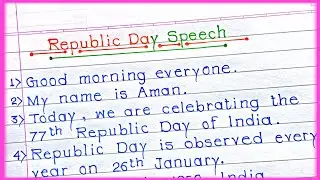 Republic Day Speech
1) Good morning everyone.
2) My name is Aman.
3) Today, we are celebrating the
77th Republic Day of India.
4) Republic Day is observed every
year on 26th January.
1950, India